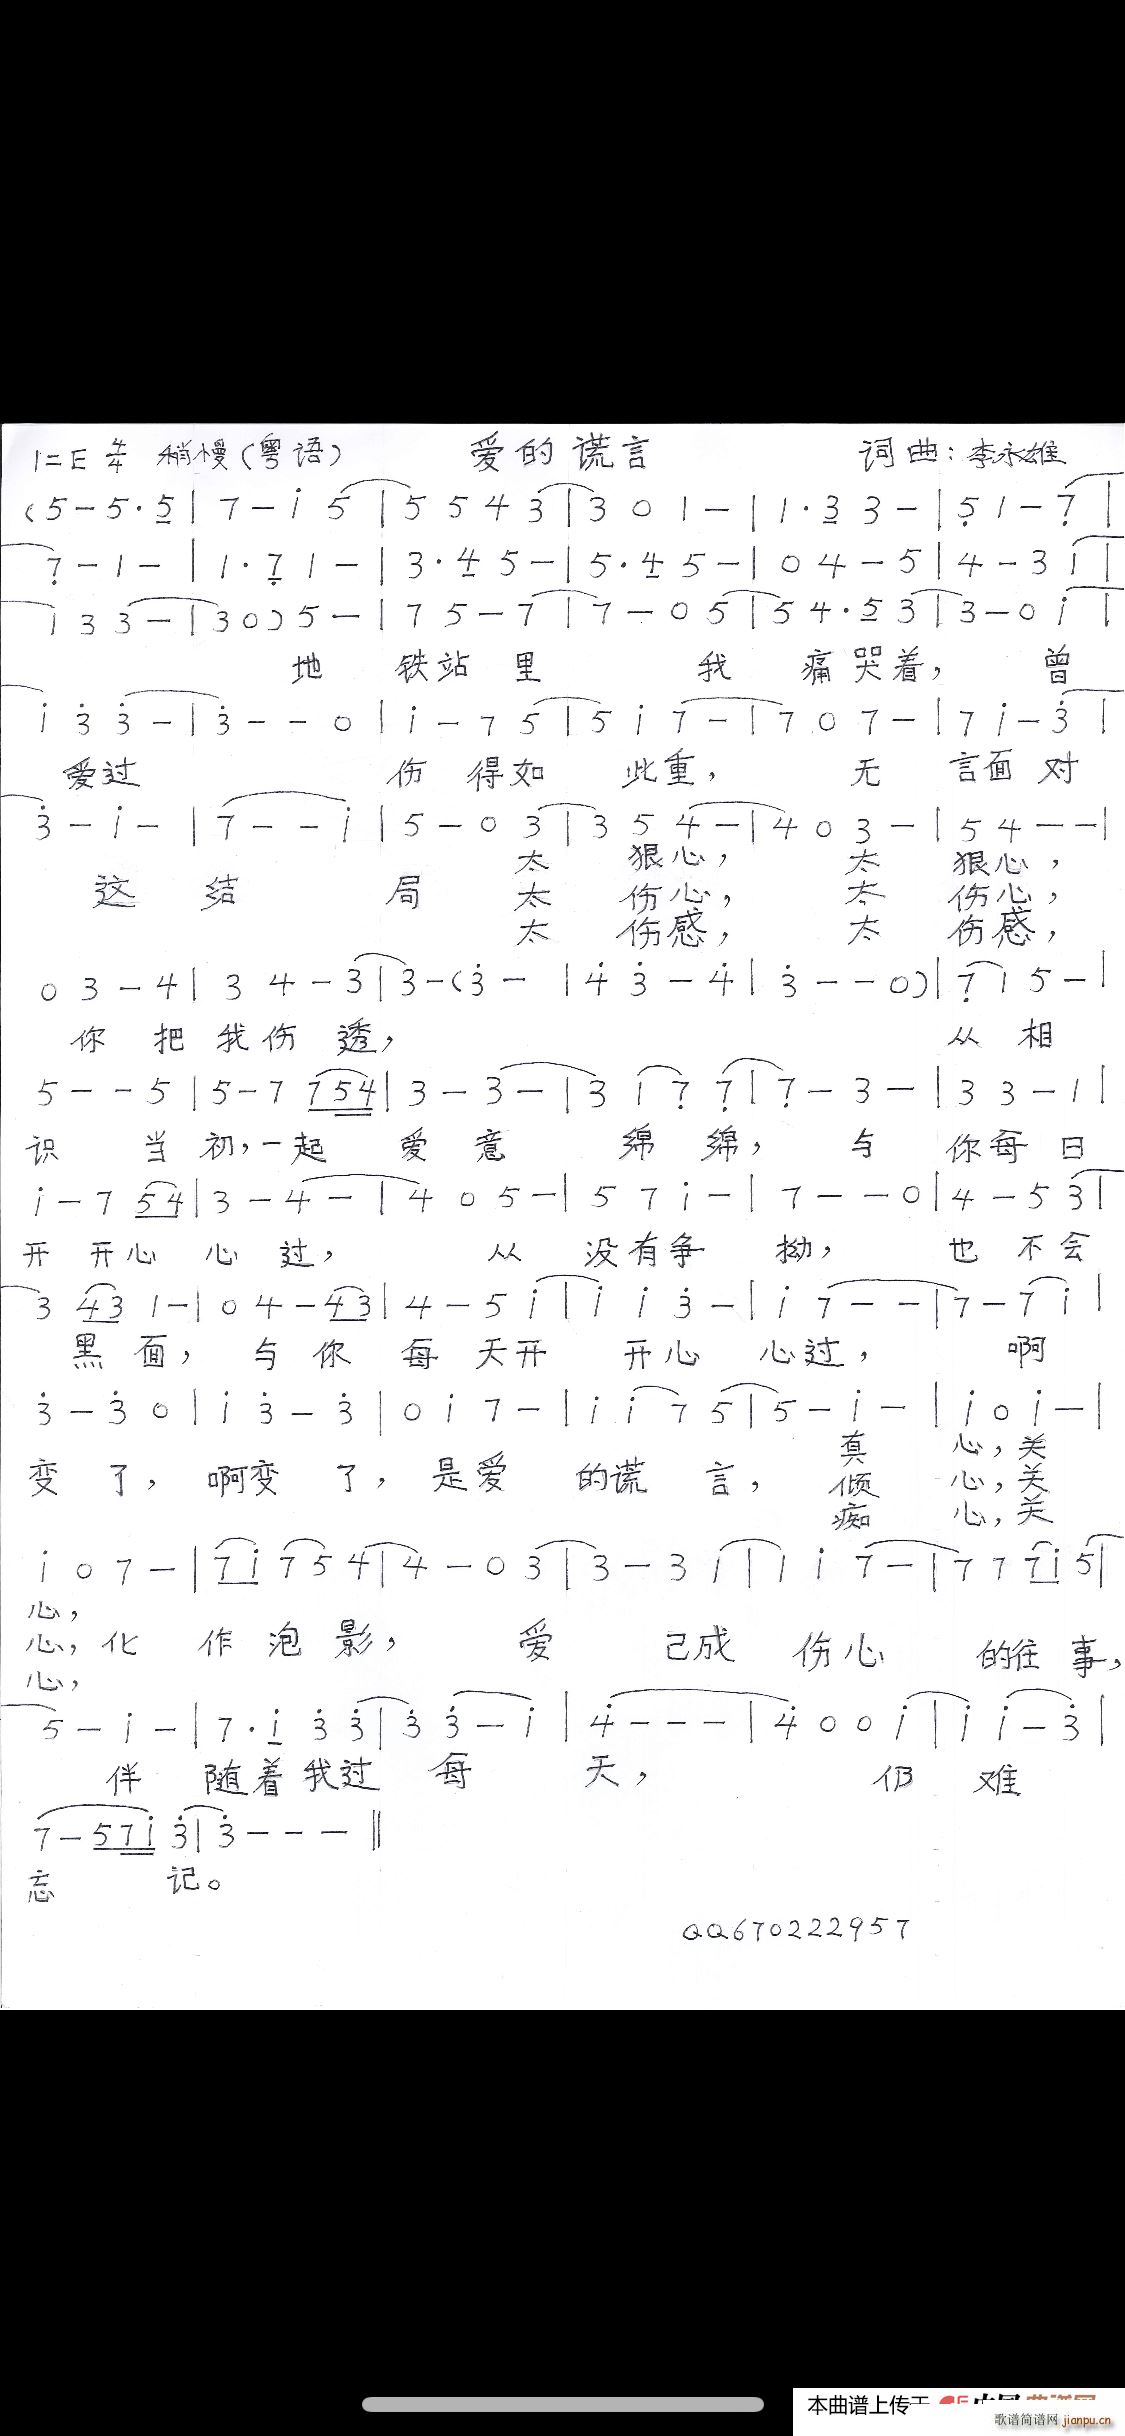 1=E 4/4 稍慢（粤语） 爱的谎言 词曲：李永雄
(5-5·5|7-i 5|5 5 4 3|3 0 1-|1·3 3-|5 1-7|
7-1-|1·7 1-|3·4 5-|5·4 5-|0 4-5|4-3 i|
i 3 3-|3 0) 5-|7 5-7|7-0 5|5 4·5 3|3-0 i|
地 铁站 里 我 痛哭着， 曾
i 3 3-|3--0|i-7 5|5 i 7-|7 0 7-|7 i-3|
爱过 伤 得如 此重， 无 言面 对
3-i-|7--i|5-0 3|3 5 4-|4 0 3-|5 4--|
太 狠心， 太 狠心，
这 结 局 太 伤心， 太 伤心，
太 伤感， 太 伤感，
0 3-4|3 4-3|3-(3-|4 3-4|3--0)|7 1 5-|
你 把 我伤 透， 从 相
5--5|5-7 7 5 4|3-3-|3 1 7 7|7-3-|3 3-1|
识 当 初，一起 爱 意 绵 绵， 与 你每 日
i-7 5 4|3-4-|4 0 5-|5 7 i-|7--0|4-5 3|
开 开心 心 过， 从 没有争 拗， 也 不会
3 4 3 1-|0 4-4 3|4-5 i|i i 3-|i 7--|7-7 i|
黑 面， 与 你 每 天开 开心 心过， 啊
3-3 0|i 3-3|0 i 7-|i i 7 5|5-i-|i 0 i-|
真 心，关
变 了， 啊变 了， 是爱 的谎 言， 倾 心，关
痴 心，关
i 0 7-|7 i 7 5 4|4-0 3|3-3 1|1 i 7-|7 7 7 i 5|
心，
心，化 作 泡 影， 爱 已成 伤心 的往 事，
心，
5-i-|7·i 3 3|3 3-i|4---|4 0 0 i|i i-3|
伴 随着 我过 每 天， 仍 难
7-5 7 i 3|3---‖
忘 记。
QQ670222957
本曲谱上传于
歌谱简谱网 jianpu.cn